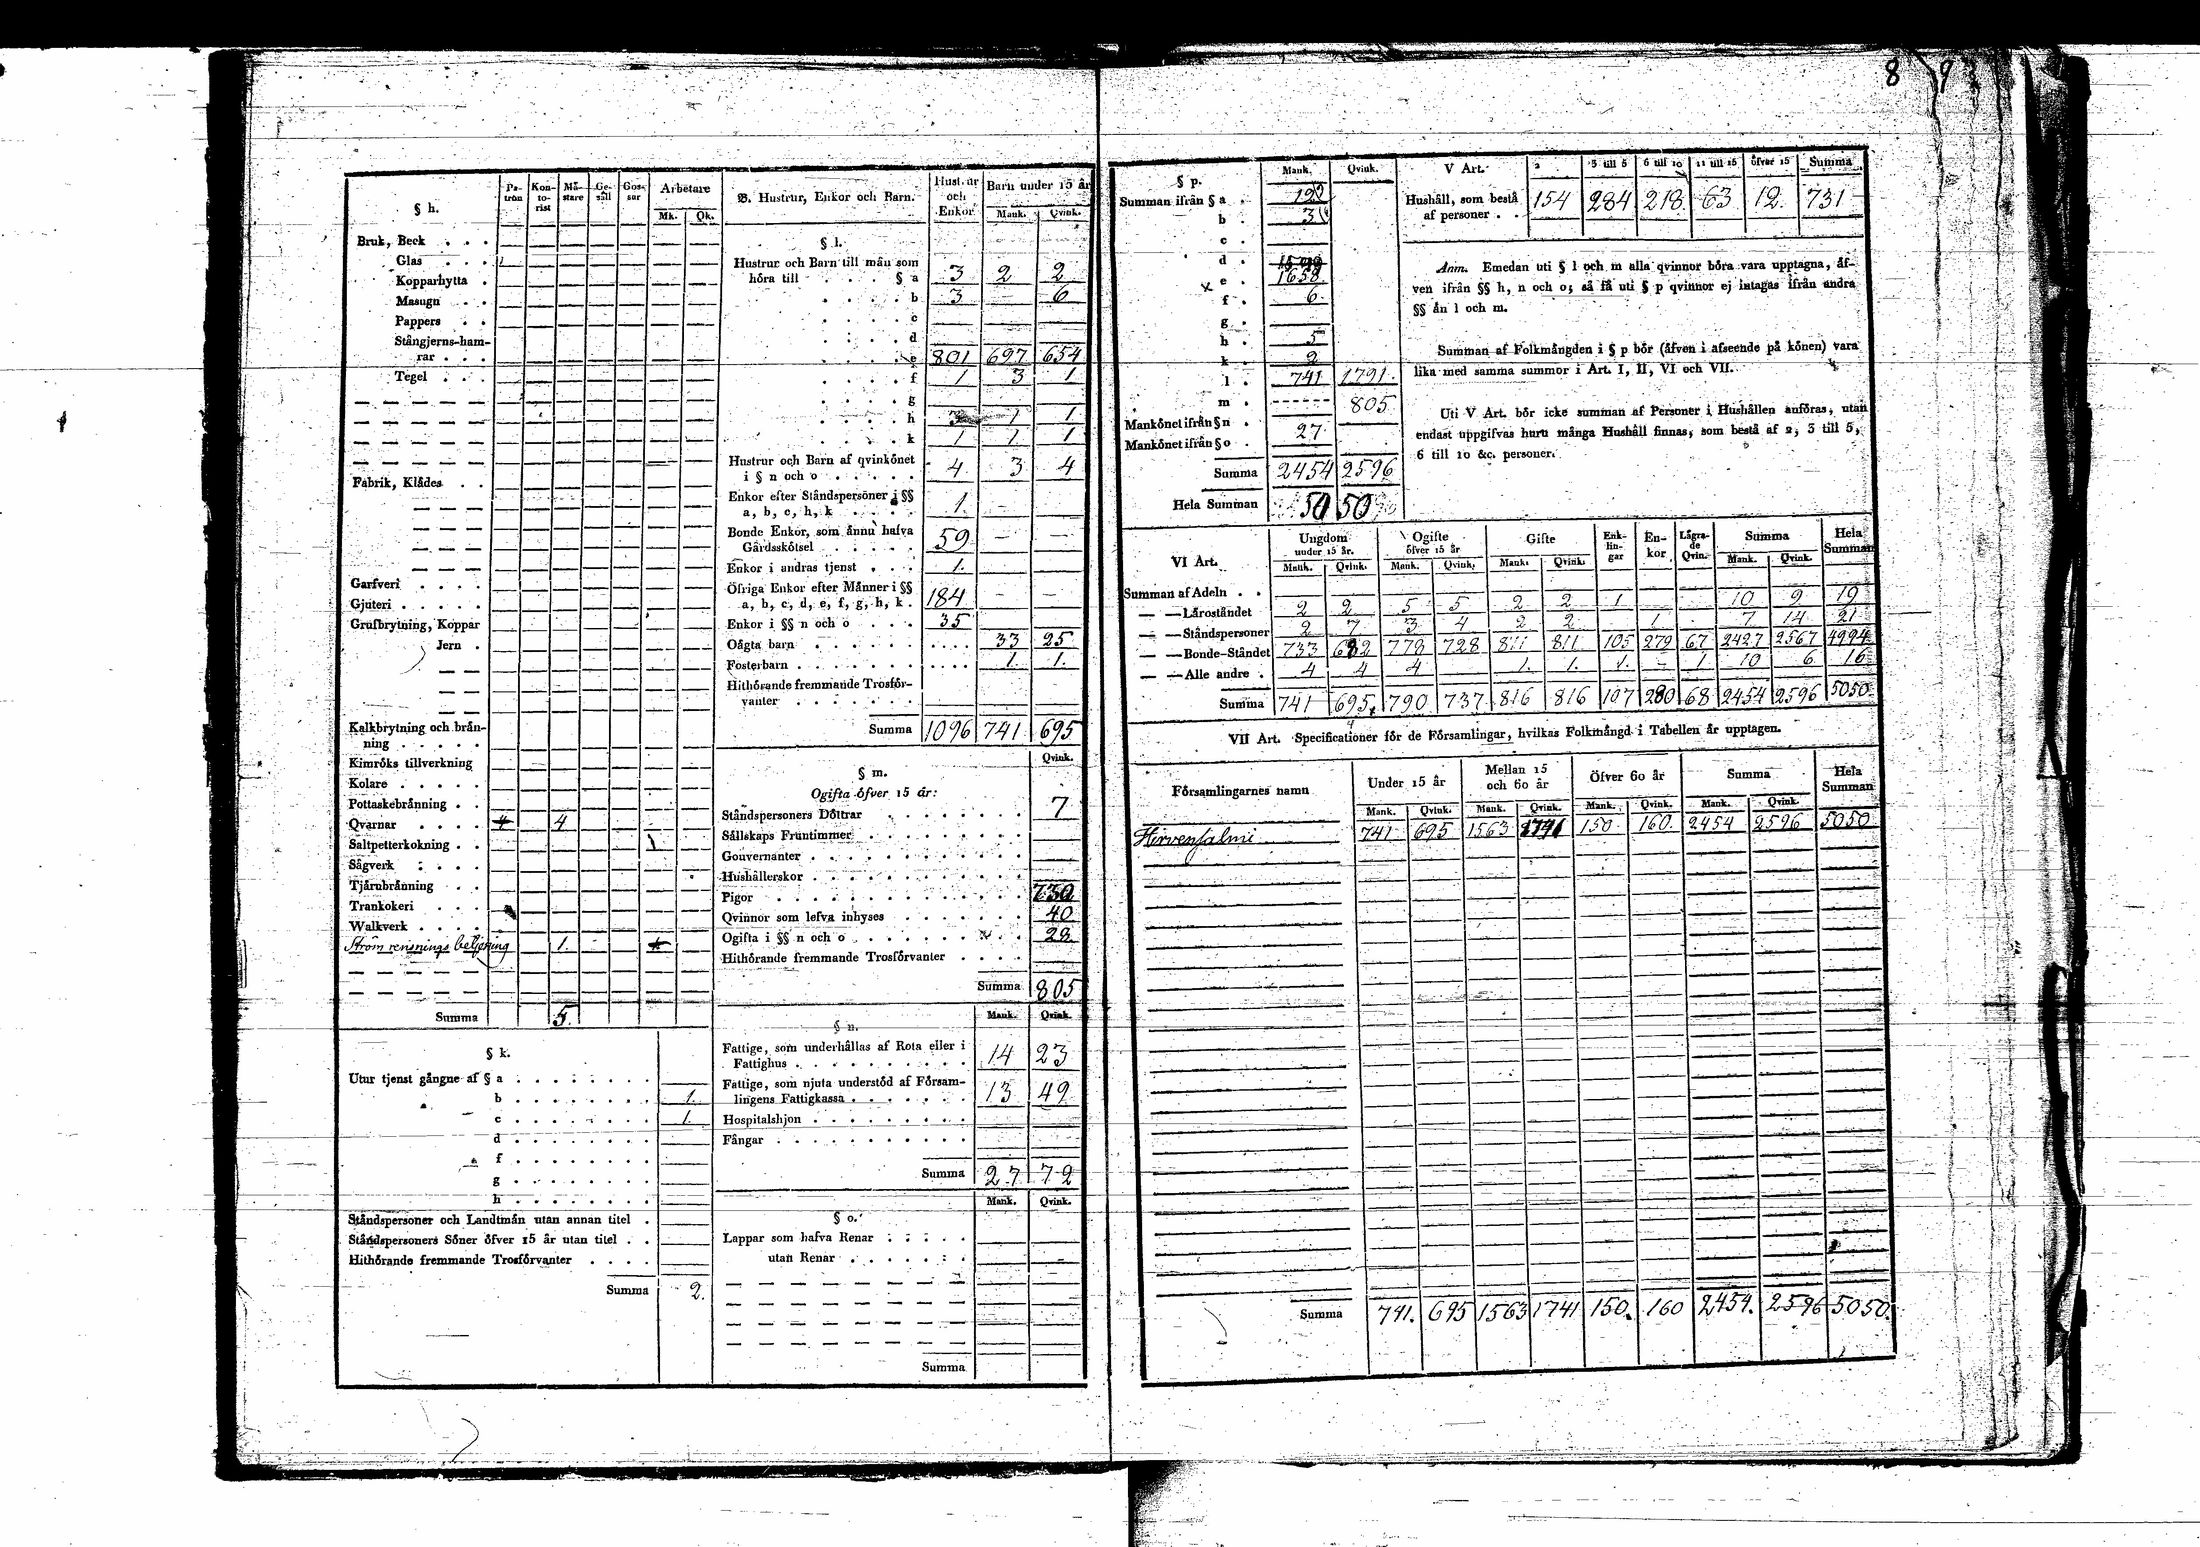 8 93
§ h.
Pa-tron Kon-to-rist Mä-stare Ge-säll Gos-sar Arbetare
Mk. Qk.
Bruk, Beck . . .
Glas . . .
Kopparhytta .
Masugn . .
Pappers . .
Stångjerns-ham-
rar . . .
Tegel . . .
Fabrik, Klädes . .
Garfveri . . . .
Gjuteri . . . . .
Grufbrytning, Koppar
Jern .
Kalkbrytning och brän-
ning . . . . .
Kimröks tillverkning
Kolare . . . . .
Pottaskebränning . .
Qvarnar . . . . 4 4
Saltpetterkokning . .
Sågverk . . . .
Tjärubränning . .
Trankokeri . . .
Walkverk . . . .
Ström rensnings betjening 1.
Summa 5.
§ k.
Utur tjenst gångne af § a . . . . . . .
b . . . . . . . 1.
c . . . . . . . 1.
d . . . . . . .
f . . . . . . .
g . . . . . . .
h . . . . . . .
Ståndspersoner och Landtmän utan annan titel .
Ståndspersoners Söner öfver 15 år utan titel . .
Hithörande fremmande Trosförvanter . . . .
Summa 2.
B. Hustrur, Enkor och Barn. Hustrur och Enkor Barn under 15 år
Mank. Qvink.
§ l.
Hustrur och Barn till män som
höra till . . . . § a 3 2 2
. . . . b 3 6
. . . . c
. . . . d
. . . . e 801 697 654
. . . . f 1 3 1
. . . . g
. . . . h 3 1 1
. . . . k 1 1 1
Hustrur och Barn af qvinkönet
i § n och o . . . . . 4 3 4
Enkor efter Ståndspersoner i §§
a, b, c, h, k . . . . 1.
Bonde Enkor, som ännu hafva
Gårdsskötsel . . . . . 59
Enkor i andras tjenst . . . 1.
Öfriga Enkor efter Männer i §§
a, b, c, d, e, f, g, h, k . 184
Enkor i §§ n och o . . . 35
Oägta barn . . . . . . . . . . 33 25
Fosterbarn . . . . . . . . . . . 1. 1.
Hithörande fremmande Trosför-
vanter . . . . . . .
Summa 1096 741 695
Qvink.
§ m.
Ogifta öfver 15 år:
Ståndspersoners Döttrar . . . . . . . 7
Sällskaps Fruntimmer . . . . . . . .
Gouvernanter . . . . . . . . . . .
Hushållerskor . . . . . . . . . . .
Pigor . . . . . . . . . . . . . 730
Qvinnor som lefva inhyses . . . . . . . 40
Ogifta i §§ n och o . . . . . . . . . 28
Hithörande fremmande Trosförvanter . . . .
Summa 805
Mank. Qvink.
§ n.
Fattige, som underhållas af Rota eller i
Fattighus . . . . . . . . . . 14 23
Fattige, som njuta understöd af Försam-
lingens Fattigkassa . . . . . . . 13 49
Hospitalshjon . . . . . . . . . .
Fångar . . . . . . . . . . . .
Summa 27 72
Mank. Qvink.
§ o.
Lappar som hafva Renar . . . . .
utan Renar . . . . . . .
Summa
§ p. Mank. Qvink.
Summan ifrån § a .
b . 3
c .
d .
e . 1658
f . 6.
g .
h . 5
k . 2
l . 741 1791.
m . 805
Mankönet ifrån § n . 27
Mankönet ifrån § o .
Summa 2454 2596
Hela Summan 5050
V Art. 2 3 till 5 6 till 10 11 till 15 öfver 15 Summa
Hushåll, som bestå
af personer . . 154 284 218 63 12. 731
Anm. Emedan uti § l och m alla qvinnor böra vara upptagna, äf-
ven ifrån §§ h, n och o; så få uti § p qvinnor ej intagas ifrån andra
§§ än l och m.
Summan af Folkmängden i § p bör (äfven i afseende på könen) vara
lika med samma summor i Art. I, II, VI och VII.
Uti V Art. bör icke summan af Personer i Hushållen anföras, utan
endast uppgifvas huru många Hushåll finnas, som bestå af 2, 3 till 5,
6 till 10 &c. personer.
VI Art. Ungdom under 15 år. Ogifte öfver 15 år Gifte Enk-lin-gar En-kor Lägra-de Qvin. Summa Hela Summan
Mank. Qvink. Mank. Qvink. Mank. Qvink. Mank. Qvink.
Summan af Adeln . .
— — Läroståndet 2 2 5 5 2 2 1 10 9 19
— — Ståndspersoner 2 7 3 4 2 2 1 7 14 21
— — Bonde-Ståndet 733 682 778 728 811 811 105 279 67 2427 2567 4994
— — Alle andre . 4 4 4 1. 1. 1. 1 10 6 16
Summa 741 695 790 737 816 816 107 280 68 2454 2596 5050
VII Art. Specificationer för de Församlingar, hvilkas Folkmängd i Tabellen är upptagen.
Församlingarnes namn Under 15 år Mellan 15 och 60 år Öfver 60 år Summa Hela Summan
Mank. Qvink. Mank. Qvink. Mank. Qvink. Mank. Qvink.
Hirvensalmi 741 695 1563 1741 150 160. 2454 2596 5050
Summa 741. 695 1563 1741 150. 160 2454. 2596 5050.